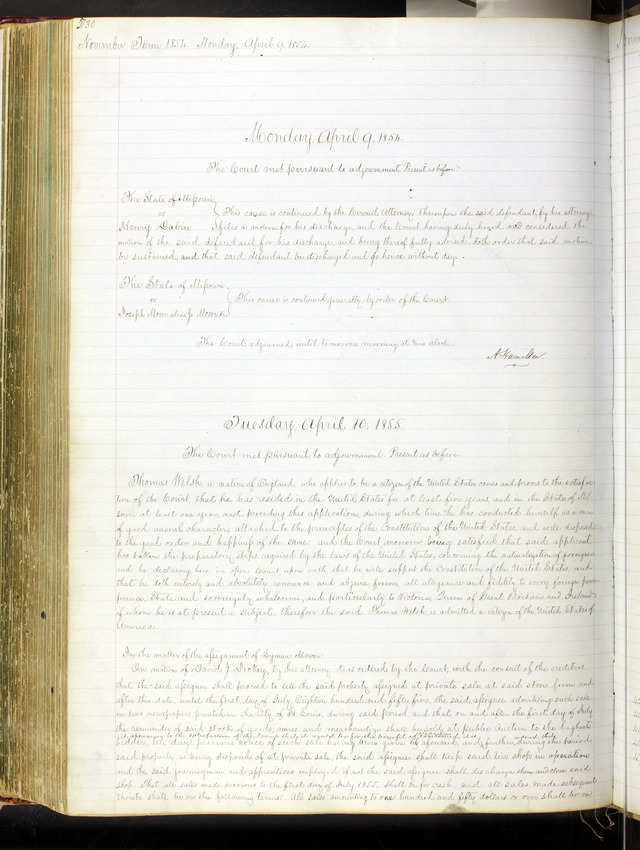 530
November Term 1854 Monday, April 9, 1854.
Monday April 9, 1854.
The Court met pursuant to adjournment. Present as before.
The State of Missouri
vs
Henry Dabin
This cause is continued by the Circuit Attorney, thereupon the said defendant, by his attorney
files a motion for his discharge, and the Court having duly heard and considered the
motion of the said defendant for his discharge, and being thereof fully advised, doth order that said motion
be sustained, and that said defendant be discharged and go hence without day.
The State of Missouri
vs
Joseph Morris alias J. Morris
This cause is continued generally, by order of the Court.
The Court adjourned, until tomorrow morning at nine o'clock.
A. Hamilton
Tuesday, April 10, 1855.
The Court met pursuant to adjournment. Present as before.
Thomas Welsh, a native of England, who applies to be a citizen of the United States comes and proves to the satisfac-
tion of the Court that he has resided in the United States for at least five years, and in the State of Mis-
souri at least one year, next preceding this application, during which time he has conducted himself as a man
of good moral character, attached to the principles of the Constitution of the United States, and well disposed
to the good order and happiness of the same: and the Court moreover being satisfied that said applicant
has taken the preparatory steps required by the laws of the United States, concerning the naturalization of foreigners
and he declaring here in open Court upon oath, that he will support the Constitution of the United States, and
that he doth entirely and absolutely renounce and abjure, forever, all allegiance and fidelity to every foreign power
prince, State and sovereignty whatsoever, and particularly to Victoria, Queen of Great Britain and Ireland
of whom he is at present a subject. therefore the said Thomas Welsh is admitted a citizen of the United States of
America.
In the matter of the assignment of Lyman
On motion of David J. Dickey, by his attorney it is ordered by the Court, with the consent of the creditors
that the said assignee shall proceed to sell the said property assigned at private sale, at said store from and
after this date, until the first day of July, Eighteen hundred and fifty five, the said assignee advertising such sale
in two newspapers, printed in the City of St Louis, during said period, and that on and after the first day of July
the remainder of said stock of goods, wares and merchandize shall be sold, at public Auction to the highest
it appearing to the satisfaction of the Court that it would be for the benefit of
bidder, ten days previous notice of such sale having been given as aforesaid, and, further, during the period
said property is being disposed of at private sale, the said assignee shall keep said tin shop in operation
and the said journeymen and apprentices employed, if not the said assignee shall discharge them and close said
shop. That all sales made previous to the first day of July 1855, shall be for cash, and all sales made subsequent
thereto shall be on the following terms: All sales amounting to one hundred and fifty dollars or over shall be on